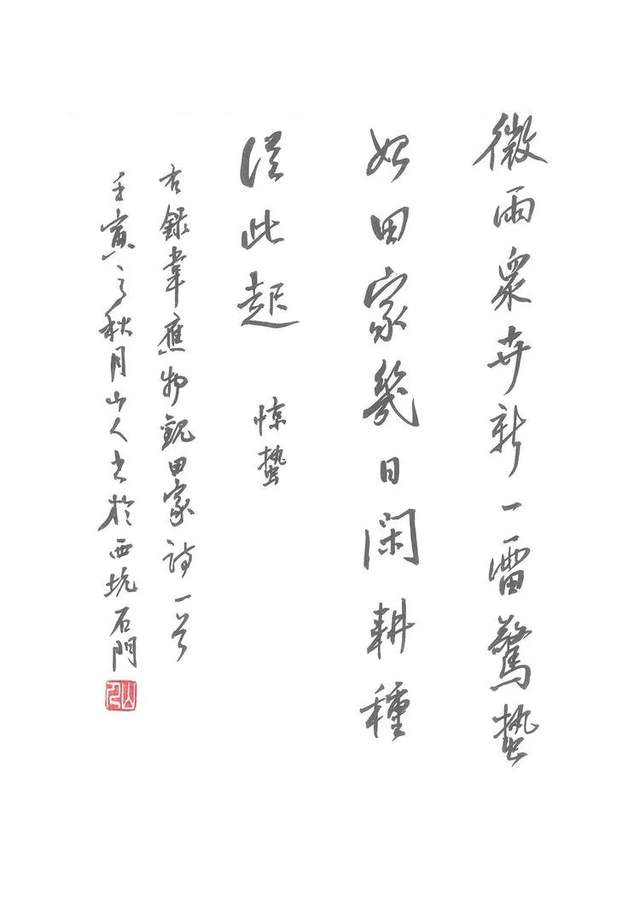 微雨眾卉新一雷驚蟄
始田家幾日閑耕種
從此起 惊蛰
右錄韋應物觀田家詩一首
壬寅之秋月山人書於西坑石門